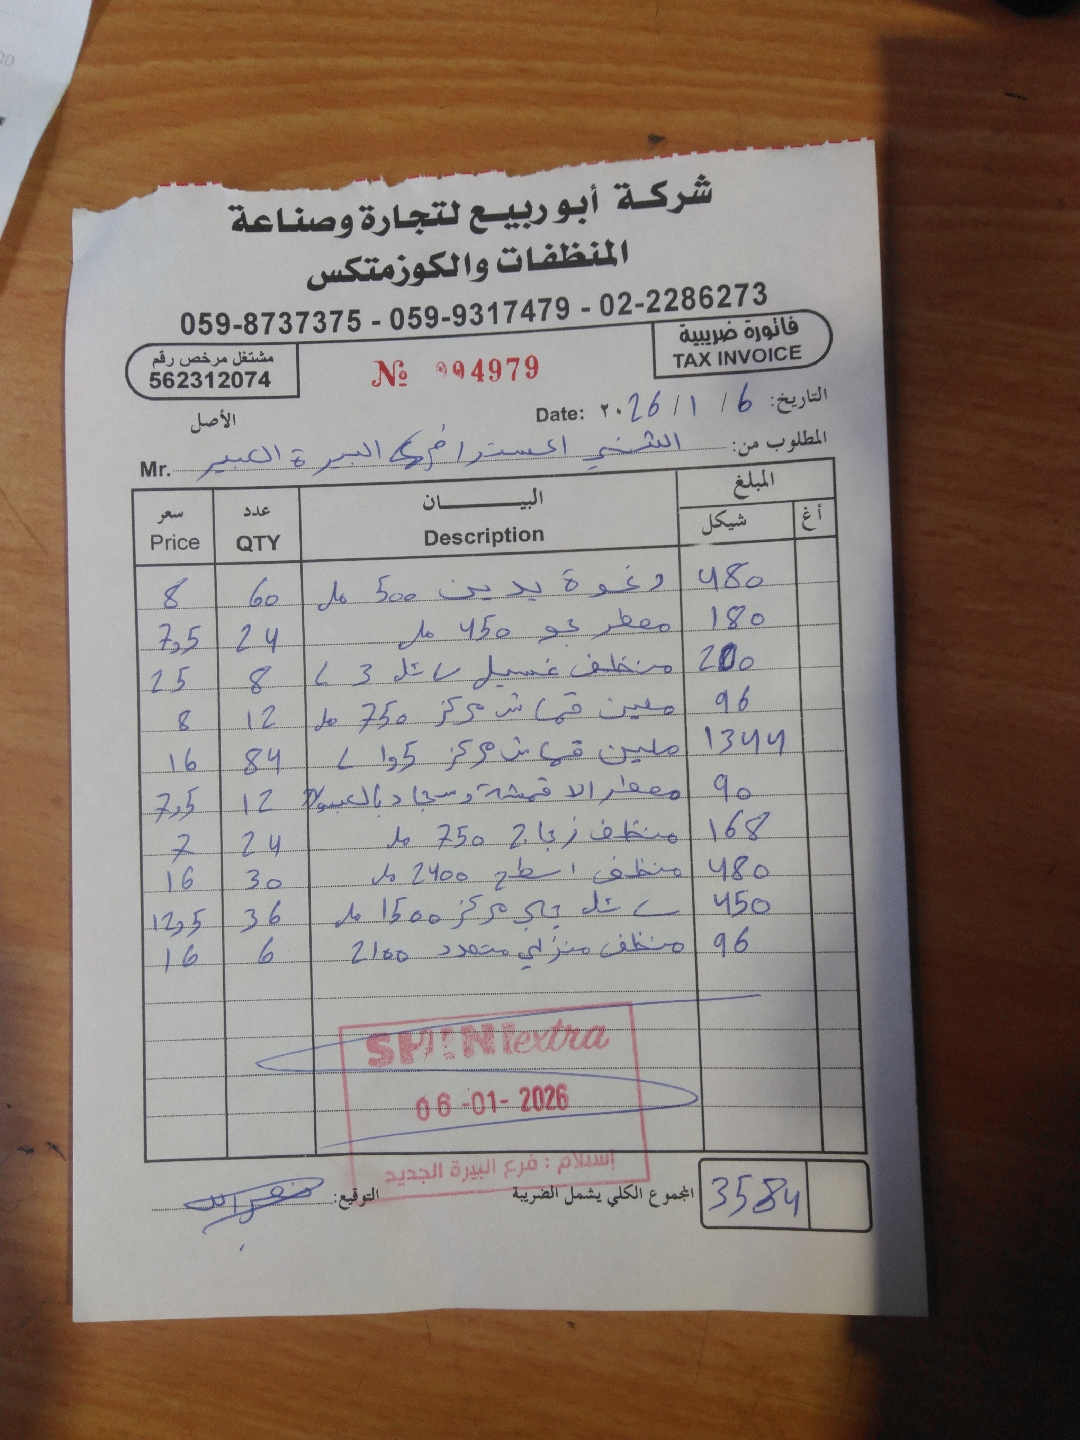 شركة أبو ربيع لتجارة وصناعة
المنظفات والكوزمتكس
059-8737375 - 059-9317479 - 02-2286273
فاتورة ضريبية
TAX INVOICE
مشتغل مرخص رقم
562312074
№ 004979
الأصل
التاريخ: 6 / 1 / ٢٠26 Date:
المطلوب من: الشني اكسترا البيرة Mr.
المبلغ البيـــان عدد سعر
أغ شيكل Description QTY Price
480 رغوة يدين 500 مل 60 8
180 معطر جو 450 مل 24 7,5
200 منظف غسيل سائل 3 ل 8 25
96 ملين قماش مركز 750 مل 12 8
1344 ملين قماش مركز 1,5 ل 84 16
90 معطر الاقمشة وسجاد 12 7,5
168 منظف زجاج 750 مل 24 7
480 منظف اسطح 2400 مل 30 16
450 سائل جلي مركز 1500 مل 36 12,5
96 منظف منزلي متعدد 2100 6 16
SHINI extra
06-01-2026
إستلام : فرع البيرة الجديد
3584 المجموع الكلي يشمل الضريبة
التوقيع: